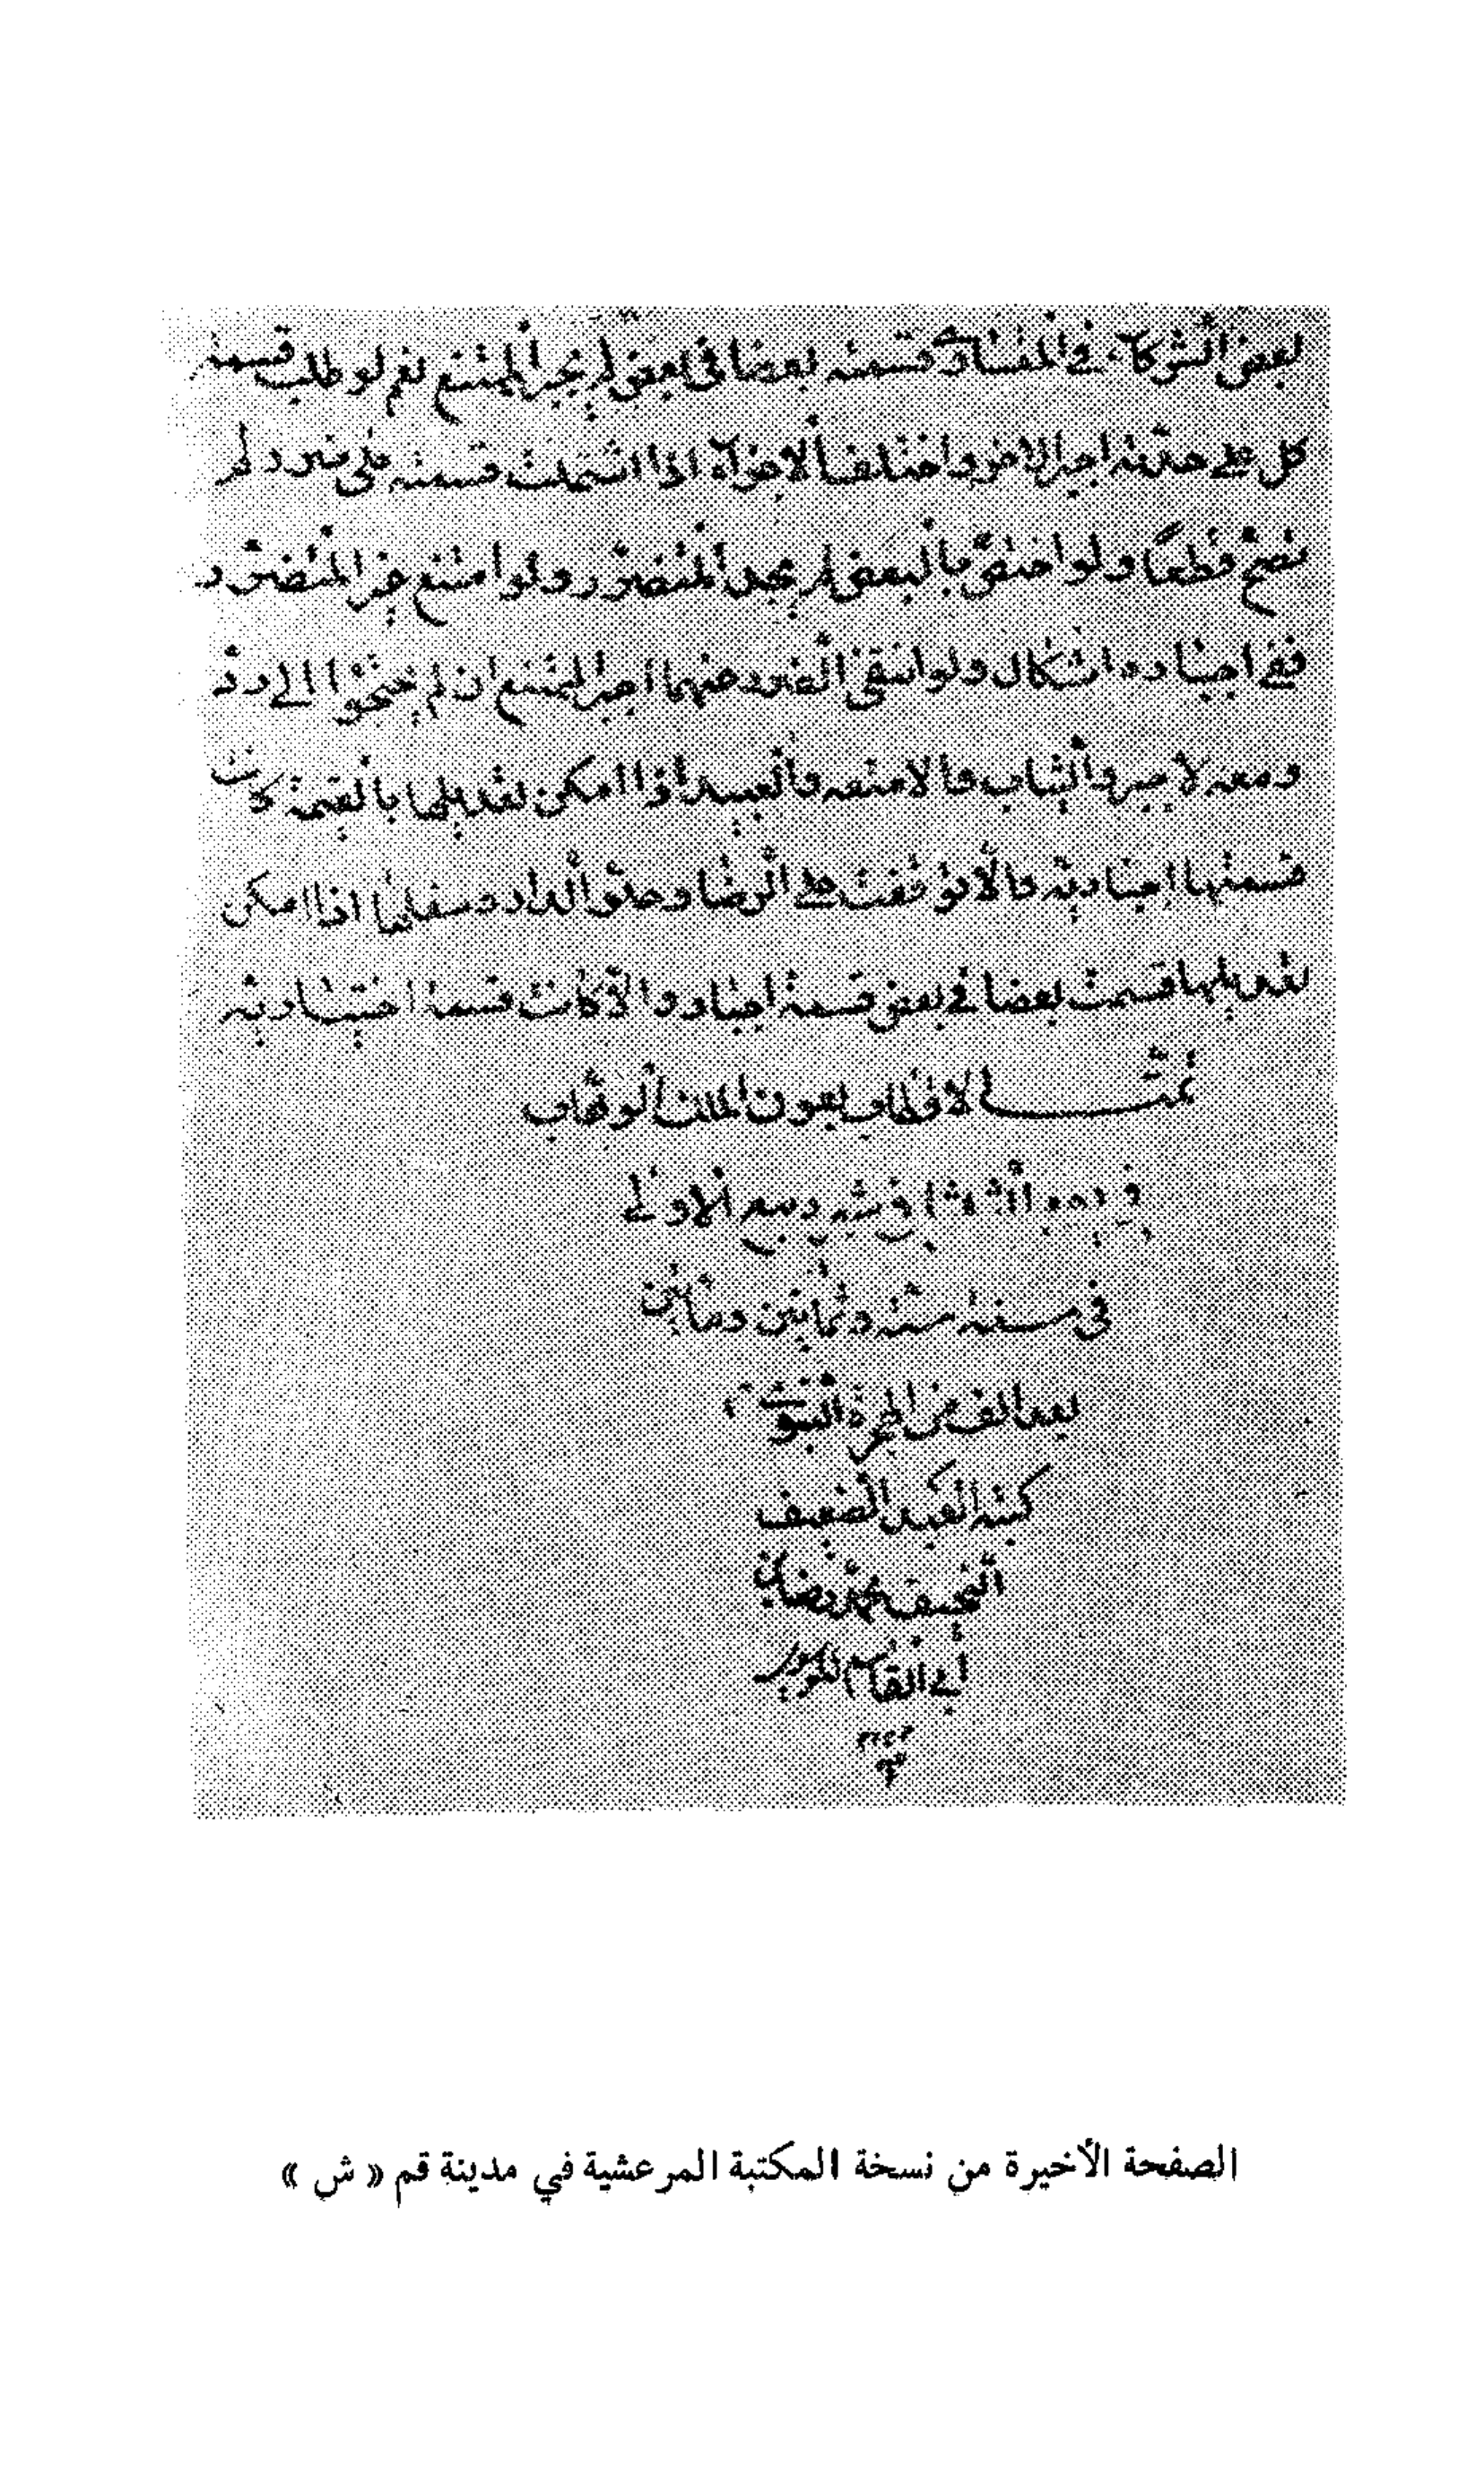 بعض الشركاء في المتشارك قسمته بعضا في بعض لم يجبر الممتنع نعم لو طلب قسمة
كل على حدته اجبر الاخر واختلف الاجزاء اذا اشتملت قسمته على ضرر لم
تصح قطعا ولو اختص بالبعض لم يجبر المتضرر ولو امتنع غير المتضرر
ففي اجباره اشكال ولو انتفى الضرر عنهما اجبر الممتنع ان لم يحتجوا الى رد
ومعه لا يجبر والثياب والامتعة والعبيد اذا امكن تعديلها بالقيمة كانت
قسمتها اجبارية والا توقفت على الرضا وعلو الدار وسفلها اذا امكن
تعديلها قسمت بعضا في بعض قسمة اجبار والا كانت قسمة اختيارية
تمت بعون الملك الوهاب
في شهر ربيع الاولى
في سنة ستة وثمانين ومائتين
بعد الف من الهجرة النبوية
كتبه العبد الضعيف
النحيف محمد رضا بن
ابي القاسم
الصفحة الأخيرة من نسخة المكتبة المرعشية في مدينة قم « ش »